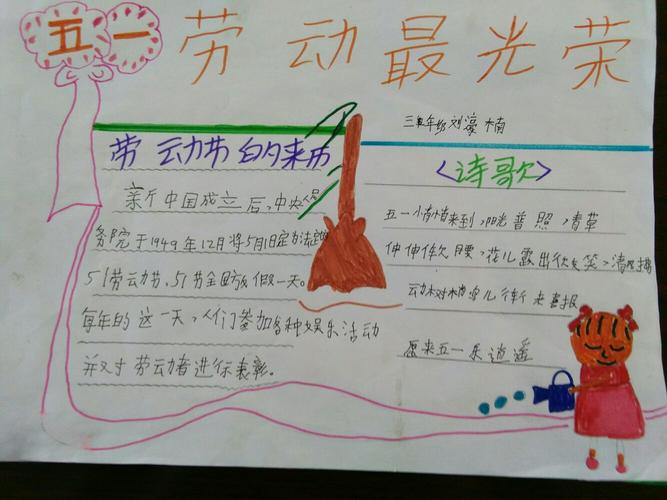 五一 劳动最光荣
三年级 刘濠楠
劳动节的来历
亲斤中国成立后,中央人民
务院于1949年12月将5月1日定为法定
51劳动节,51节全国放假一天。
每年的这一天,人们参加各种娱乐活动
并对劳动者进行表彰。
<诗歌>
五一悄悄来到,阳光普照,青草
伸伸懒腰,花儿露出微笑,清风
动树梢鸟儿衔来喜报
原来五一乐逍遥